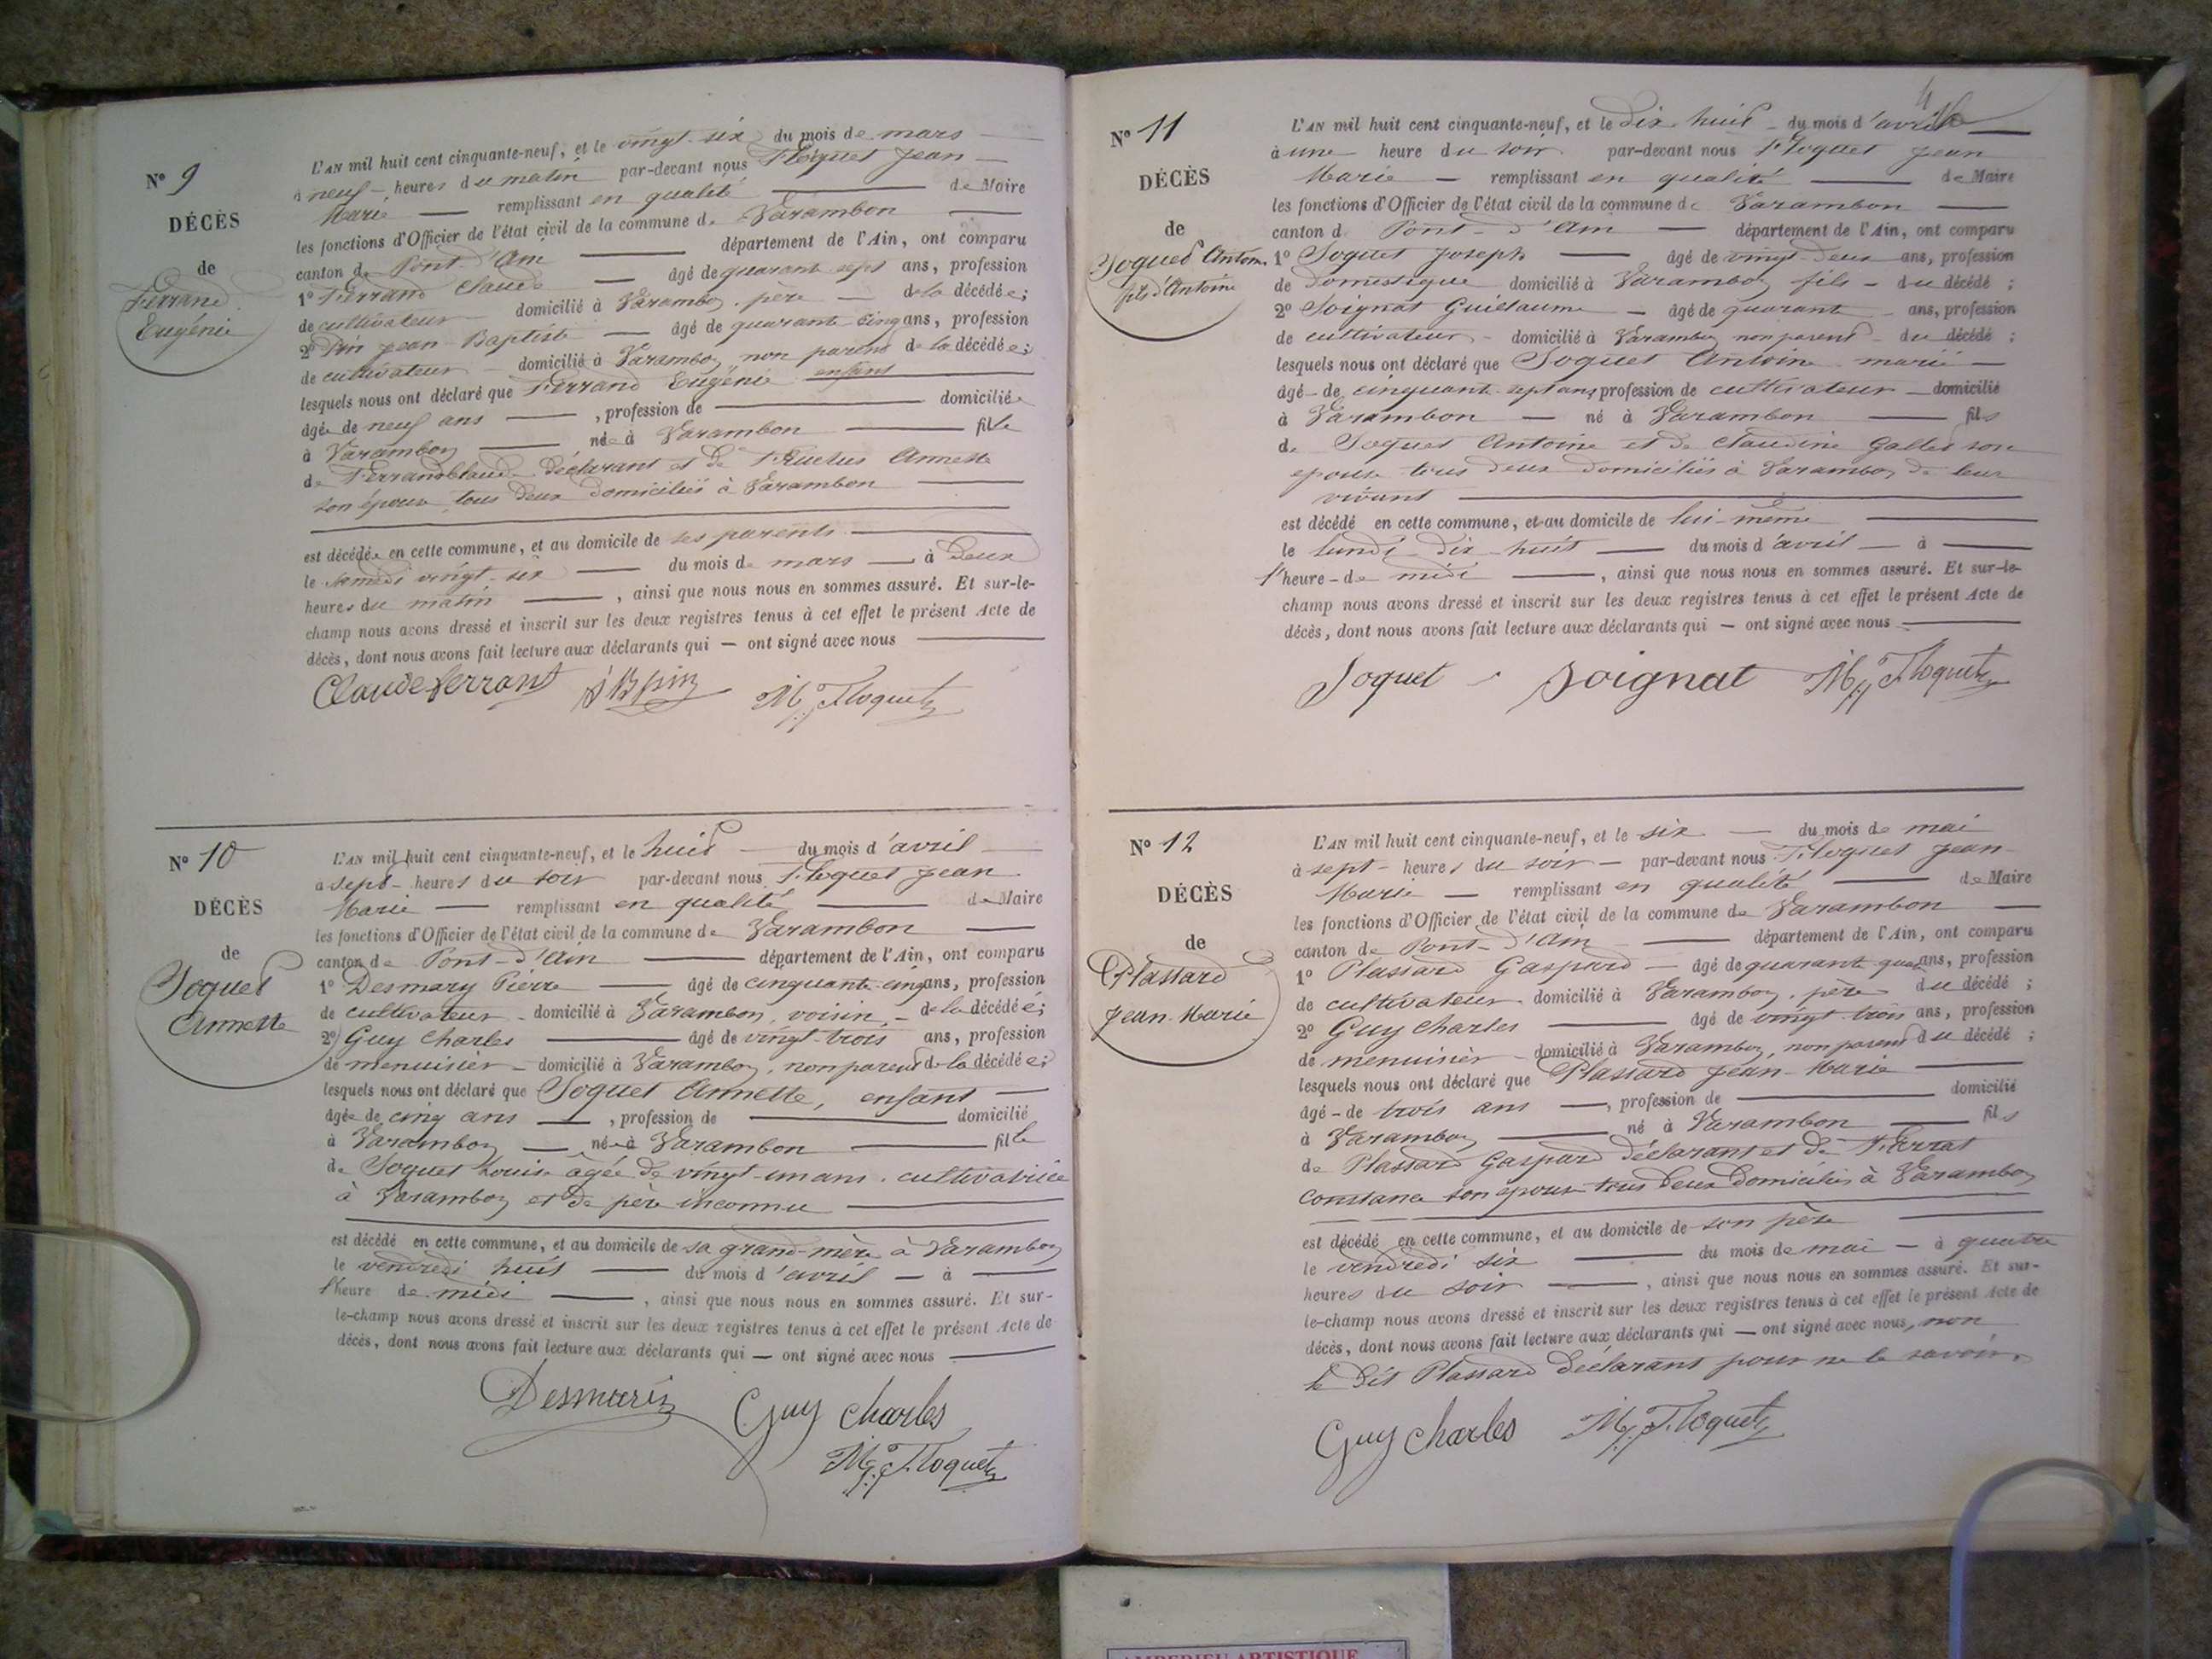 Nº 9
DÉCÈS
de
Ferrand
Eugénie
L'AN mil huit cent cinquante-neuf, et le vingt-six du mois de mars
à neuf heures du matin par-devant nous Floquet Jean
Marie remplissant en qualité de Maire
les fonctions d'Officier de l'état civil de la commune de Varambon
canton de Pont-d'Ain département de l'Ain, ont comparu
1º Ferrand Claude âgé de quarante sept ans, profession
de cultivateur domicilié à Varambon, père de la décédée;
2º Pin Jean Baptiste âgé de quarante-cinq ans, profession
de cultivateur domicilié à Varambon non parent de la décédée;
lesquels nous ont déclaré que Ferrand Eugénie enfant
âgée de neuf ans, profession de domiciliée
à Varambon née à Varambon fille
de Ferrand Claude déclarant et de Annette
son épouse tous deux domiciliés à Varambon
est décédée en cette commune, et au domicile de ses parents
le samedi vingt-six du mois de mars à deux
heures du matin, ainsi que nous nous en sommes assuré. Et sur-le-
champ nous avons dressé et inscrit sur les deux registres tenus à cet effet le présent Acte de
décès, dont nous avons fait lecture aux déclarants qui ont signé avec nous
Claude ferrant J B pin M. Floquet
Nº 10
DÉCÈS
de
Joguet
Annette
L'AN mil huit cent cinquante-neuf, et le huit du mois d'avril
à sept heures du soir par-devant nous Floquet Jean
Marie remplissant en qualité de Maire
les fonctions d'Officier de l'état civil de la commune de Varambon
canton de Pont-d'Ain département de l'Ain, ont comparu
1º Desmary Pierre âgé de cinquante-cinq ans, profession
de cultivateur domicilié à Varambon, voisin de la décédée;
2º Guy Charles âgé de vingt-trois ans, profession
de menuisier domicilié à Varambon, non parent de la décédée;
lesquels nous ont déclaré que Joguet Annette, enfant
âgée de cinq ans, profession de domicilié
à Varambon née à Varambon fille
de Joguet Louise âgée de vingt-un ans, cultivatrice
à Varambon et de père inconnu
est décédé en cette commune, et au domicile de sa grand-mère à Varambon
le vendredi huit du mois d'avril à
l'heure de midi, ainsi que nous nous en sommes assuré. Et sur-
le-champ nous avons dressé et inscrit sur les deux registres tenus à cet effet le présent Acte de
décès, dont nous avons fait lecture aux déclarants qui ont signé avec nous
Desmaris Guy charles
M. Floquet
4
Nº 11
DÉCÈS
de
Joguet Antoine
fils d'Antoine
L'AN mil huit cent cinquante-neuf, et le dix huit du mois d'avril
à une heure du soir par-devant nous Floquet Jean
Marie remplissant en qualité de Maire
les fonctions d'Officier de l'état civil de la commune de Varambon
canton d Pont-d'Ain département de l'Ain, ont comparu
1º Joguet Joseph âgé de vingt-deux ans, profession
de domestique domicilié à Varambon fils du décédé;
2º Soignat Guillaume âgé de quarante ans, profession
de cultivateur domicilié à Varambon non parent du décédé;
lesquels nous ont déclaré que Joguet Antoine marié
âgé de cinquante-sept ans profession de cultivateur domicilié
à Varambon né à Varambon fils
de Joguet Antoine et de Claudine Gallet son
épouse tous deux domiciliés à Varambon de leur
vivant
est décédé en cette commune, et au domicile de lui-même
le lundi dix-huit du mois d'avril à
l'heure de midi, ainsi que nous nous en sommes assuré. Et sur-le-
champ nous avons dressé et inscrit sur les deux registres tenus à cet effet le présent Acte de
décès, dont nous avons fait lecture aux déclarants qui ont signé avec nous
Joguet Soignat M. Floquet
Nº 12
DÉCÈS
de
Plassard
Jean-Marie
L'AN mil huit cent cinquante-neuf, et le six du mois de mai
à sept heures du soir par-devant nous Floquet Jean
Marie remplissant en qualité de Maire
les fonctions d'Officier de l'état civil de la commune de Varambon
canton de Pont-d'Ain département de l'Ain, ont comparu
1º Plassard Gaspard âgé de quarante-quatre ans, profession
de cultivateur domicilié à Varambon, père du décédé;
2º Guy Charles âgé de vingt-trois ans, profession
de menuisier domicilié à Varambon, non parent du décédé;
lesquels nous ont déclaré que Plassard Jean-Marie
âgé de trois ans, profession de domicilié
à Varambon né à Varambon fils
de Plassard Gaspard déclarant et de Ferrat
Constance son épouse tous deux domiciliés à Varambon
est décédé en cette commune, et au domicile de son père
le vendredi six du mois de mai à quatre
heures du soir, ainsi que nous nous en sommes assuré. Et sur-
le-champ nous avons dressé et inscrit sur les deux registres tenus à cet effet le présent Acte de
décès, dont nous avons fait lecture aux déclarants qui ont signé avec nous, non
le dit Plassard déclarant pour ne le savoir.
Guy charles M. Floquet
AMBERIEU ARTISTIQUE